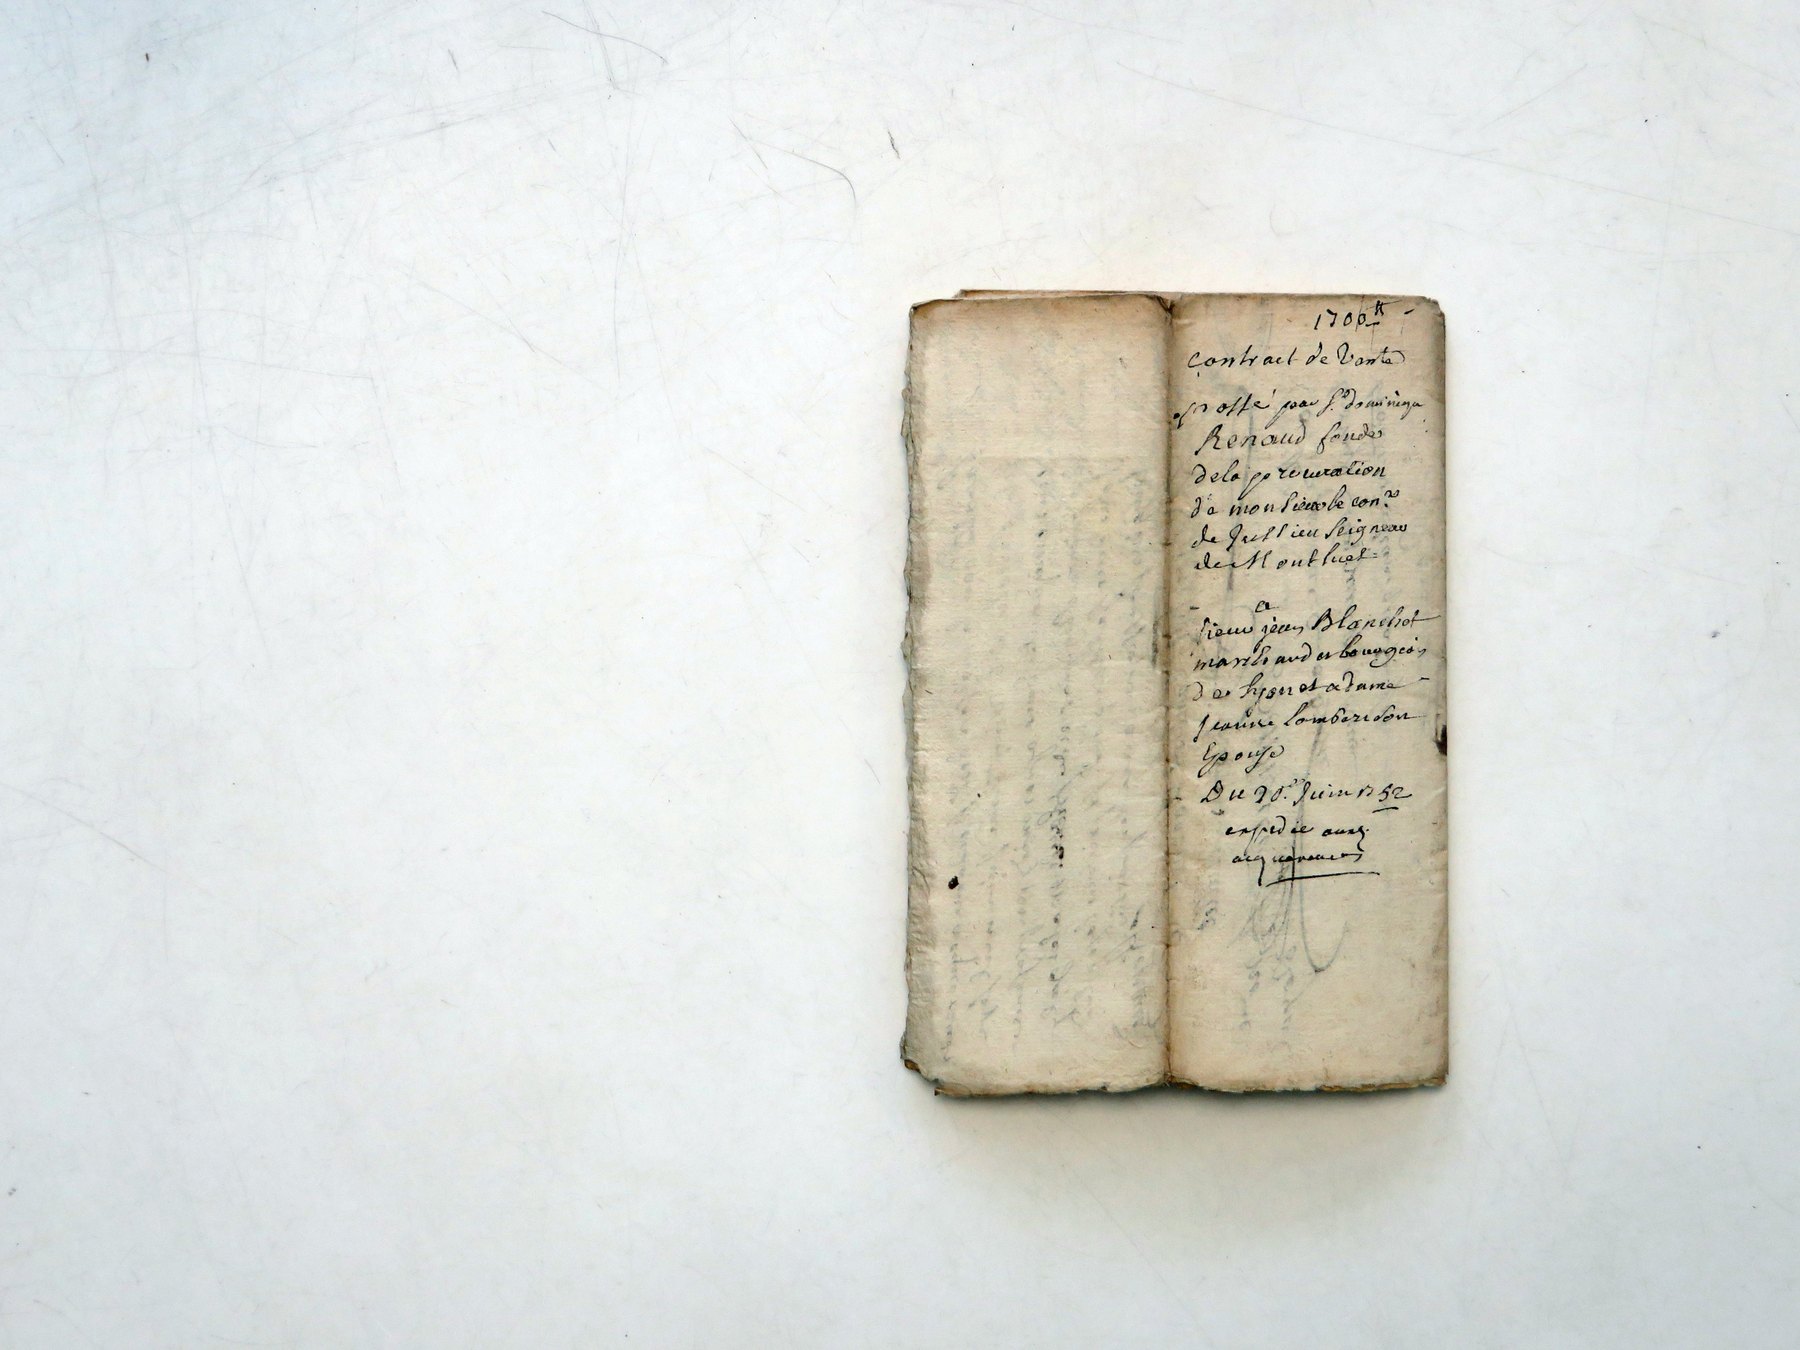 1700tt
Contract de Vente
passé par Sr dominique
Renaud fondé
de la procuration
de monsieur le con.er
de Jussieu seigneur
de Montluel
a
sieur jean Blanchet
marchand et bourgeois
de Lyon et a dame
Jeanne Lambert son
Epouse
Du 20e Juin 1752
expedié aux
acquereurs